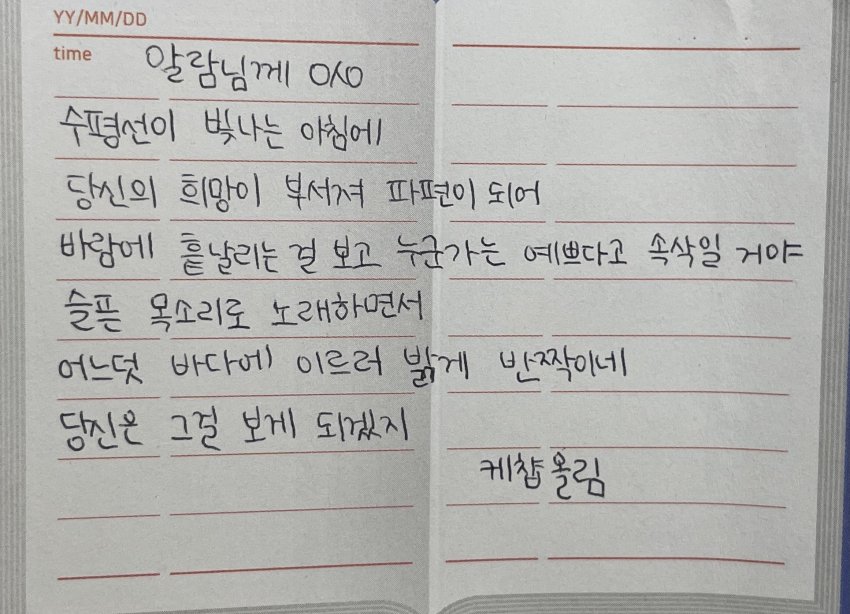 YY/MM/DD
time
알람님께 OAO
수평선이 빛나는 아침에
당신의 희망이 부서져 파편이 되어
바람에 흩날리는 걸 보고 누군가는 예쁘다고 속삭일 거야
슬픈 목소리로 노래하면서
어느덧 바다에 이르러 밝게 반짝이네
당신은 그걸 보게 되겠지
케챱 올림